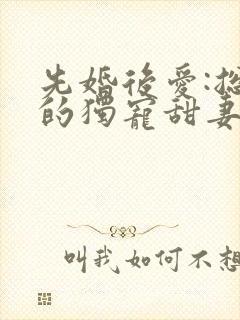 先婚後愛:
的獨寵甜妻
叫我如何不想